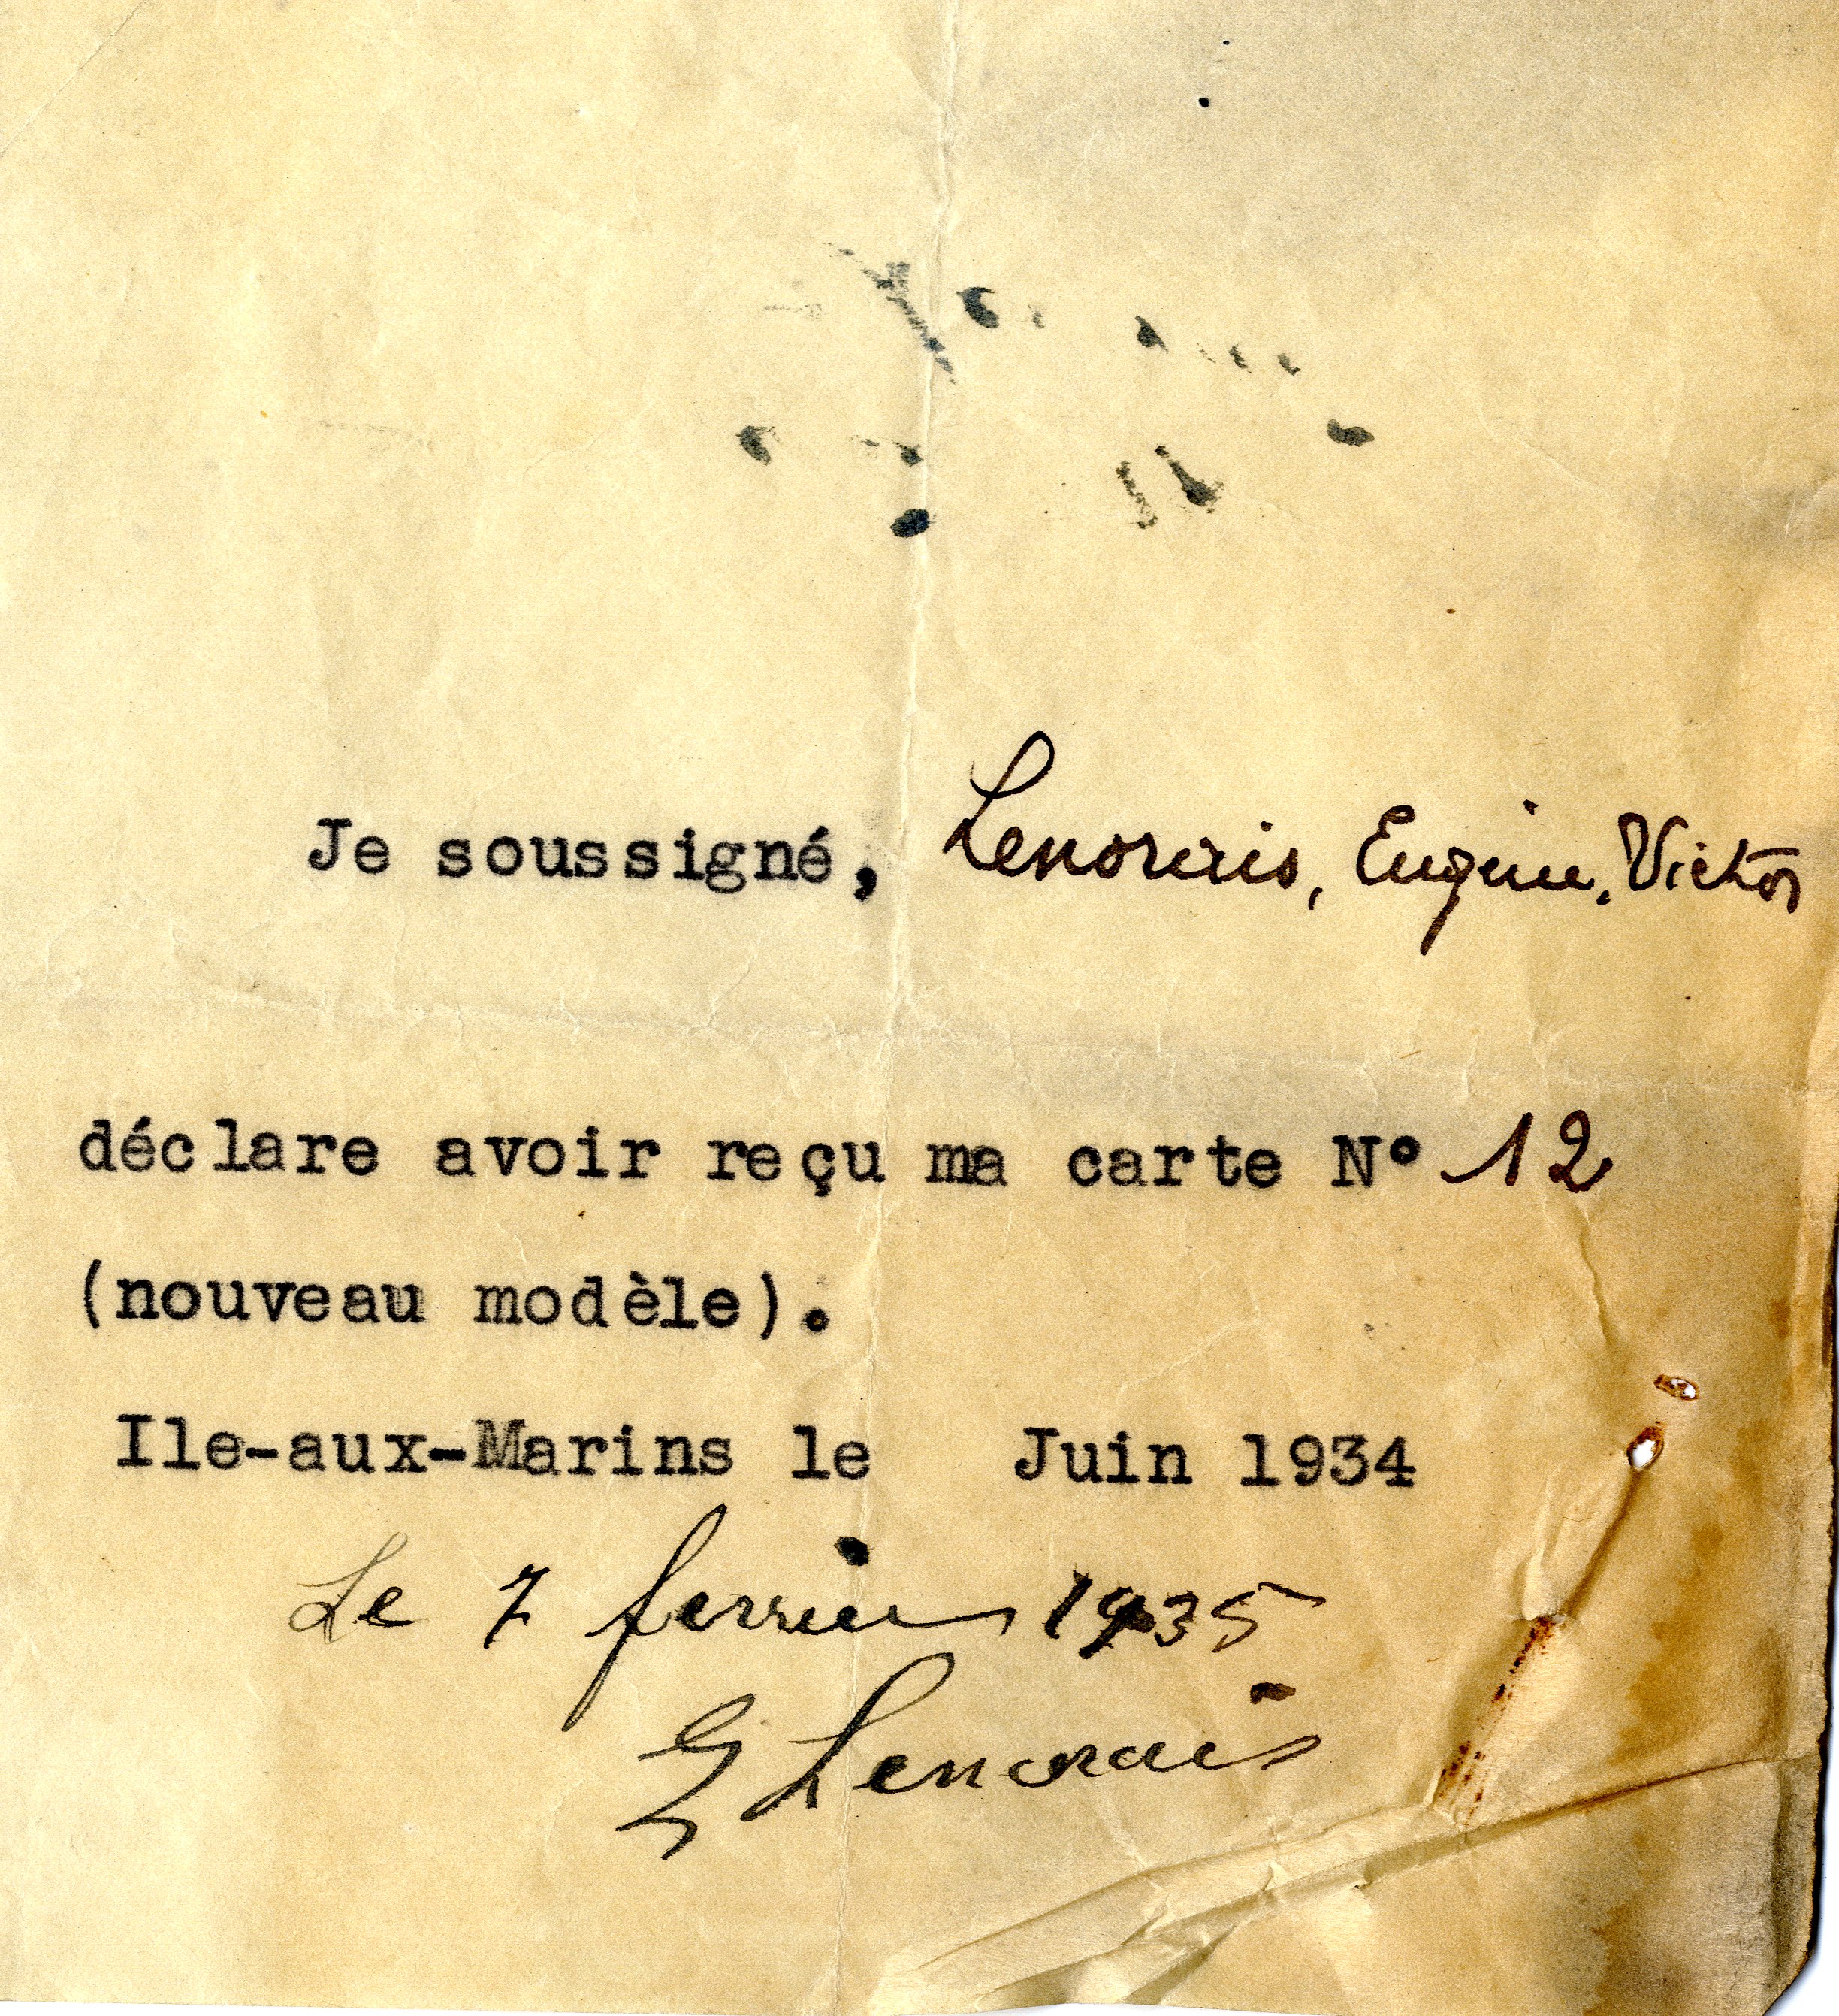 Je soussigné, Lenormais, Eugène, Victor
déclare avoir reçu ma carte N° 12
(nouveau modèle).
Ile-aux-Marins le Juin 1934
Le 7 fevrier 1935
E Lenormais